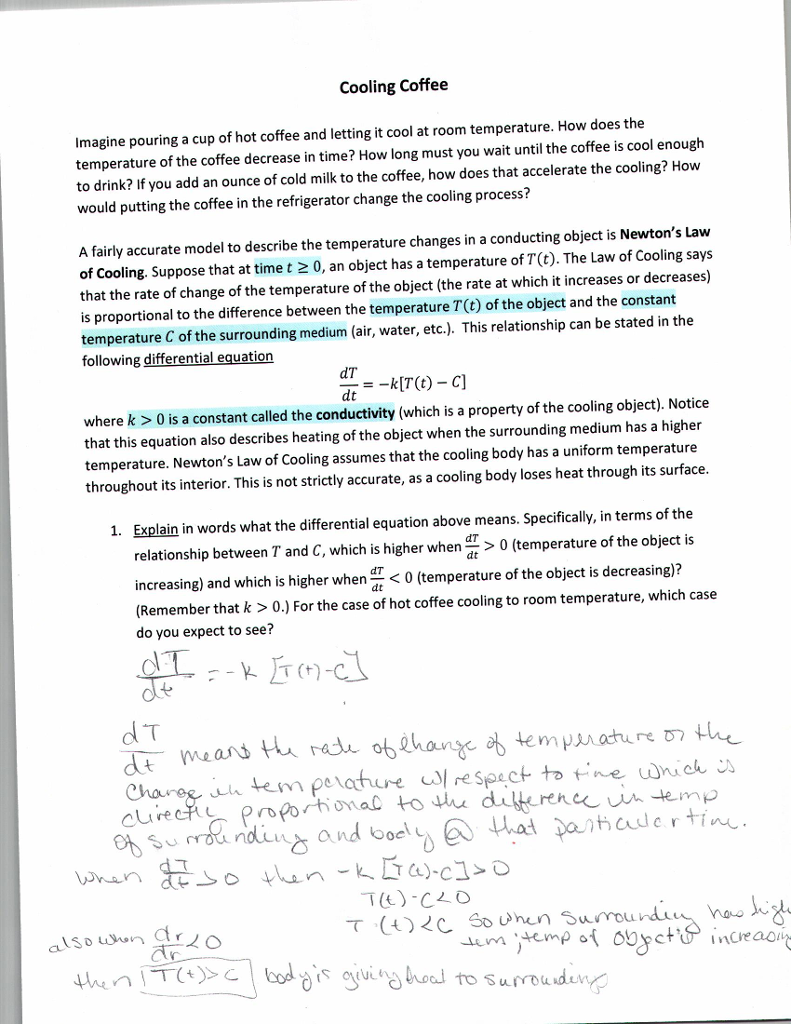 Cooling Coffee
Imagine pouring a cup of hot coffee and letting it cool at room temperature. How does the
temperature of the coffee decrease in time? How long must you wait until the coffee is cool enough
to drink? If you add an ounce of cold milk to the coffee, how does that accelerate the cooling? How
would putting the coffee in the refrigerator change the cooling process?
A fairly accurate model to describe the temperature changes in a conducting object is Newton's Law
of Cooling. Suppose that at time t ≥ 0, an object has a temperature of T(t). The Law of Cooling says
that the rate of change of the temperature of the object (the rate at which it increases or decreases)
is proportional to the difference between the temperature T(t) of the object and the constant
temperature C of the surrounding medium (air, water, etc.). This relationship can be stated in the
following differential equation
dT/dt = −k[T(t) − C]
where k > 0 is a constant called the conductivity (which is a property of the cooling object). Notice
that this equation also describes heating of the object when the surrounding medium has a higher
temperature. Newton's Law of Cooling assumes that the cooling body has a uniform temperature
throughout its interior. This is not strictly accurate, as a cooling body loses heat through its surface.
1. Explain in words what the differential equation above means. Specifically, in terms of the
relationship between T and C, which is higher when dT/dt > 0 (temperature of the object is
increasing) and which is higher when dT/dt < 0 (temperature of the object is decreasing)?
(Remember that k > 0.) For the case of hot coffee cooling to room temperature, which case
do you expect to see?
dT/dt = -k [T(t)-C]
dT/dt means the rate of change of temperature or the
Change in temperature w/ respect to time which is
directly proportional to the difference in temp
of surrounding and body @ that particular time.
when dT/dt > 0 then -k [T(t)-C] > 0
T(t)-C<0
T(t)<C so when surrounding has high
tem; temp of object is increasing
also when dT/dt < 0
then T(t)>C body is giving heat to surrounding